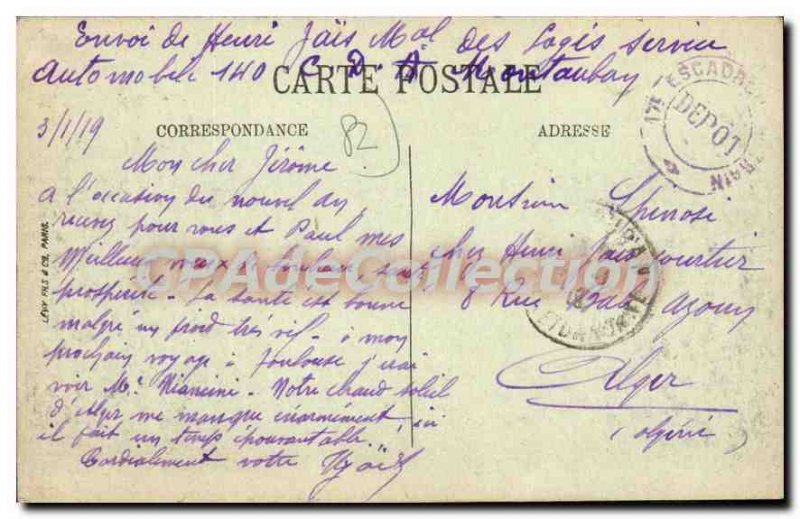 Envoi de Henri Jaïs Mal des Logis service
Automobile 140 C D A Montauban
CARTE POSTALE
3/1/19
CORRESPONDANCE
82
ADRESSE
17e ESCADRON TRAIN
DEPÔT
Mon cher Jérôme.
A l'occasion du nouvel an
recevez pour vous et Paul mes
Meilleurs vœux & santé
prospérité. La santé est bonne
malgré un froid très vif. à mon
prochain voyage à Toulouse j'irai
voir Mr. Mancini. Notre chaud soleil
d'Alger me manque énormément, ici
il fait un temps épouvantable.
Cordialement votre HJaïs
Monsieur Spinosi
chez Henri Jaïs courtier
8 Rue
Alger
(Algérie)
LÉVY FILS & Cie, PARIS.
CPAdeCollection